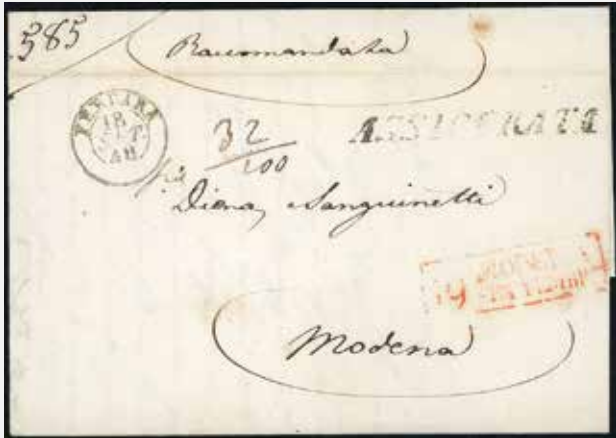 585
Racomandata
FERRARA
18
OTT
48
32
100
ASSICURATA
Diena, Sanguinetti
19
Modena